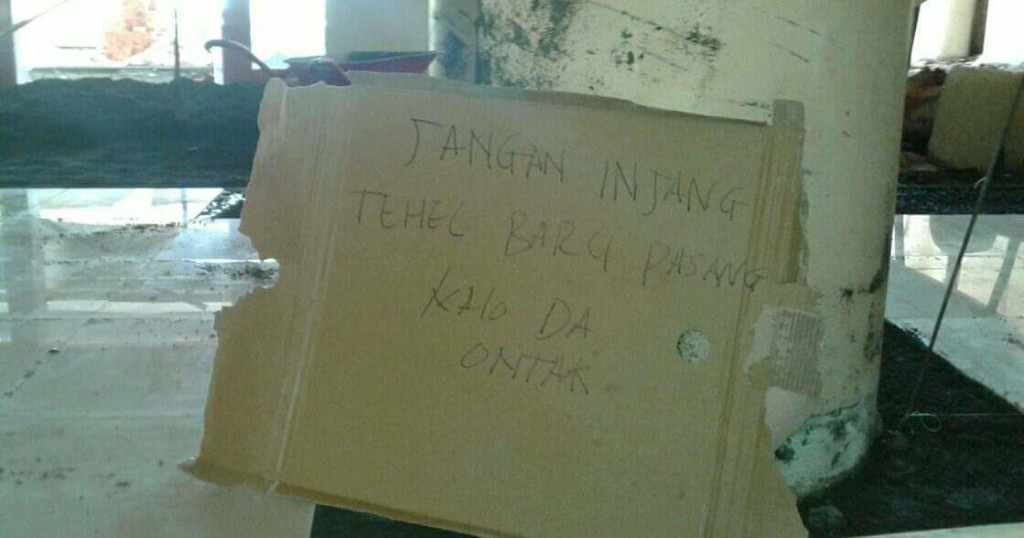 JANGAN INJANG
TEHEL BARU PASANG
KALO DA
ONTAK